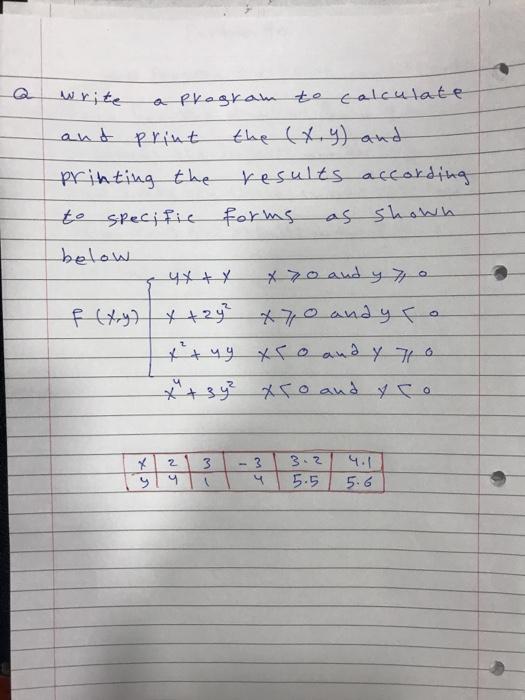 Q write a program to calculate
and print the (x,y) and
printing the results according
to specific forms as shown
below
4x + y x ⩾ 0 and y ⩾ 0
F (x,y) x + 2y² x ⩾ 0 and y < 0
x² + 4y x < 0 and y ⩾ 0
x⁴ + 3y² x < 0 and y < 0
x 2 3 -3 3.2 4.1
y 4 1 4 5.5 5.6